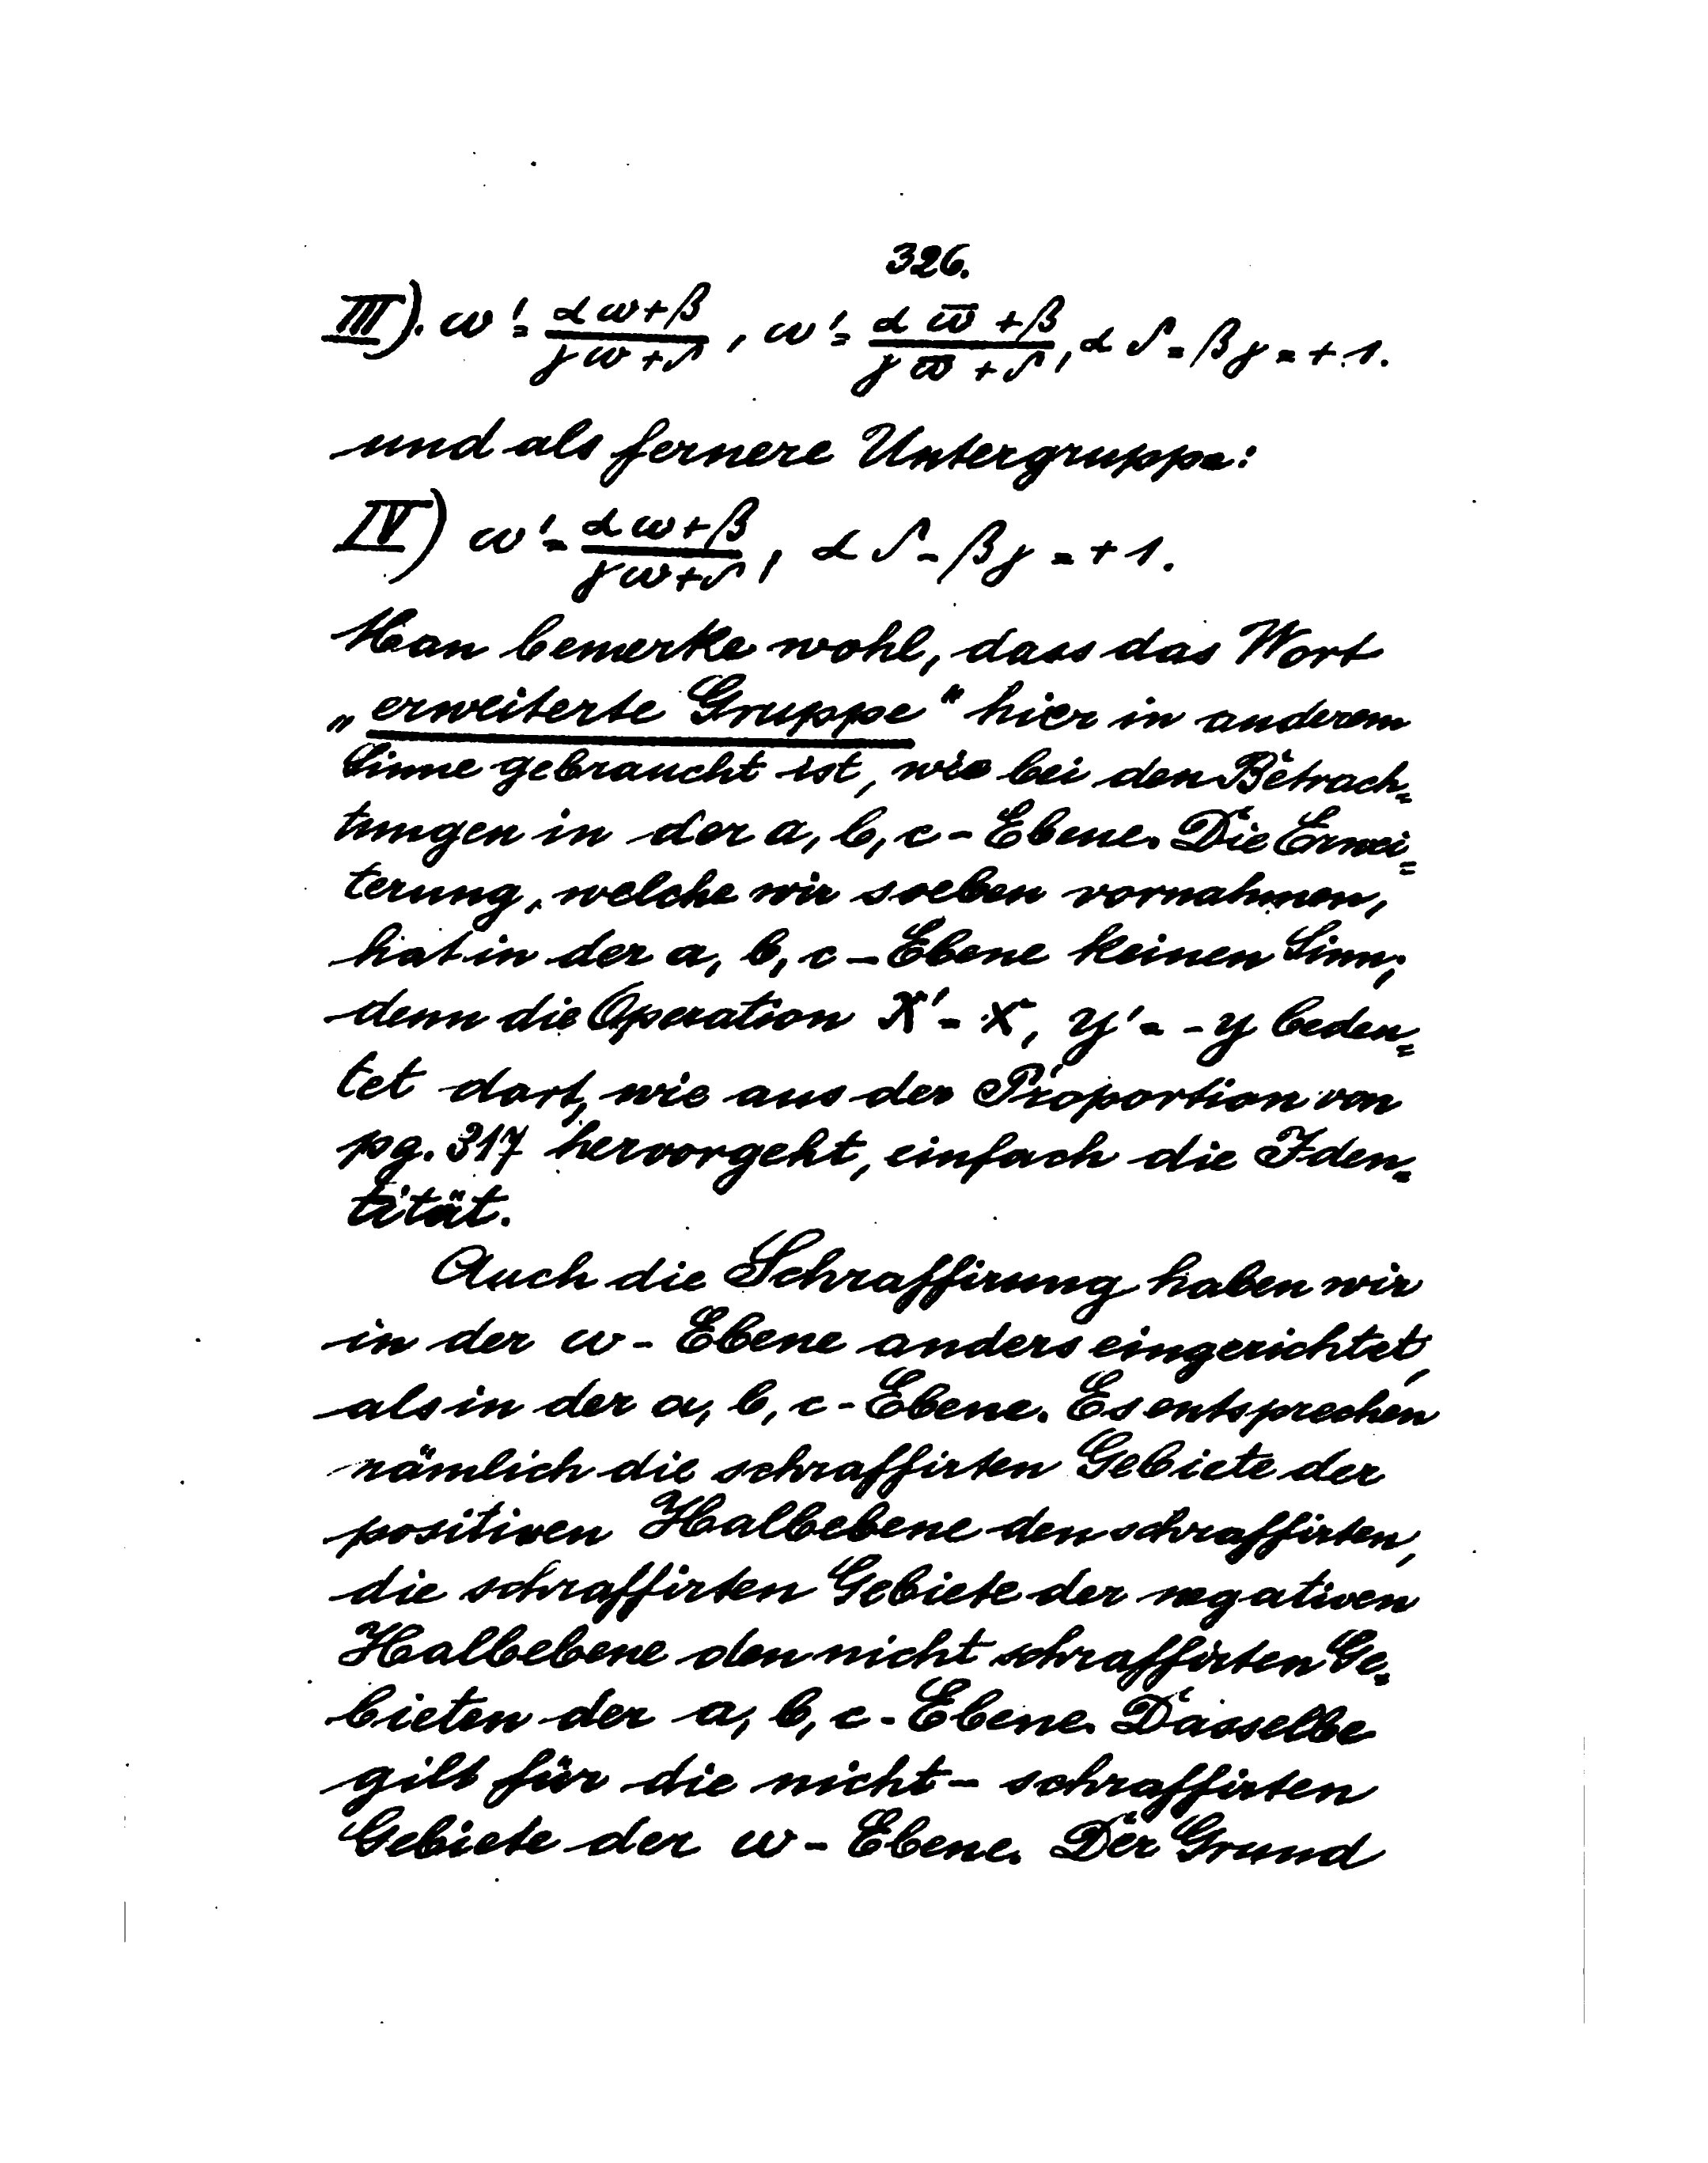 326.
III). ω' = (αω+β)/(γω+δ), ω' = (αω̅+β)/(γω̅+δ), αδ-βγ = +1.
und als fernere Untergruppe:
IV) ω' = (αω+β)/(γω+δ), αδ-βγ = +1.
Man bemerke wohl, dass das Wort
„erweiterte Gruppe“ hier in anderem
Sinne gebraucht ist, wie bei den Betrach=
tungen in der a, b, c-Ebene. Die Erwei=
terung, welche wir soeben vornahmen,
hat in der a, b, c-Ebene keinen Sinn;
denn die Operation X' = X, Y' = -Y bedeu=
tet dort, wie aus der Proportion von
pg. 317 hervorgeht, einfach die Iden=
tität.
Auch die Schraffirung haben wir
in der ω-Ebene anders eingerichtet,
als in der a, b, c-Ebene. Es entsprechen
nämlich die schraffirten Gebiete der
positiven Halbebene den schraffirten,
die schraffirten Gebiete der negativen
Halbebene den nicht schraffirten Ge=
bieten der a, b, c-Ebene. Dasselbe
gilt für die nicht-schraffirten
Gebiete der ω-Ebene. Der Grund